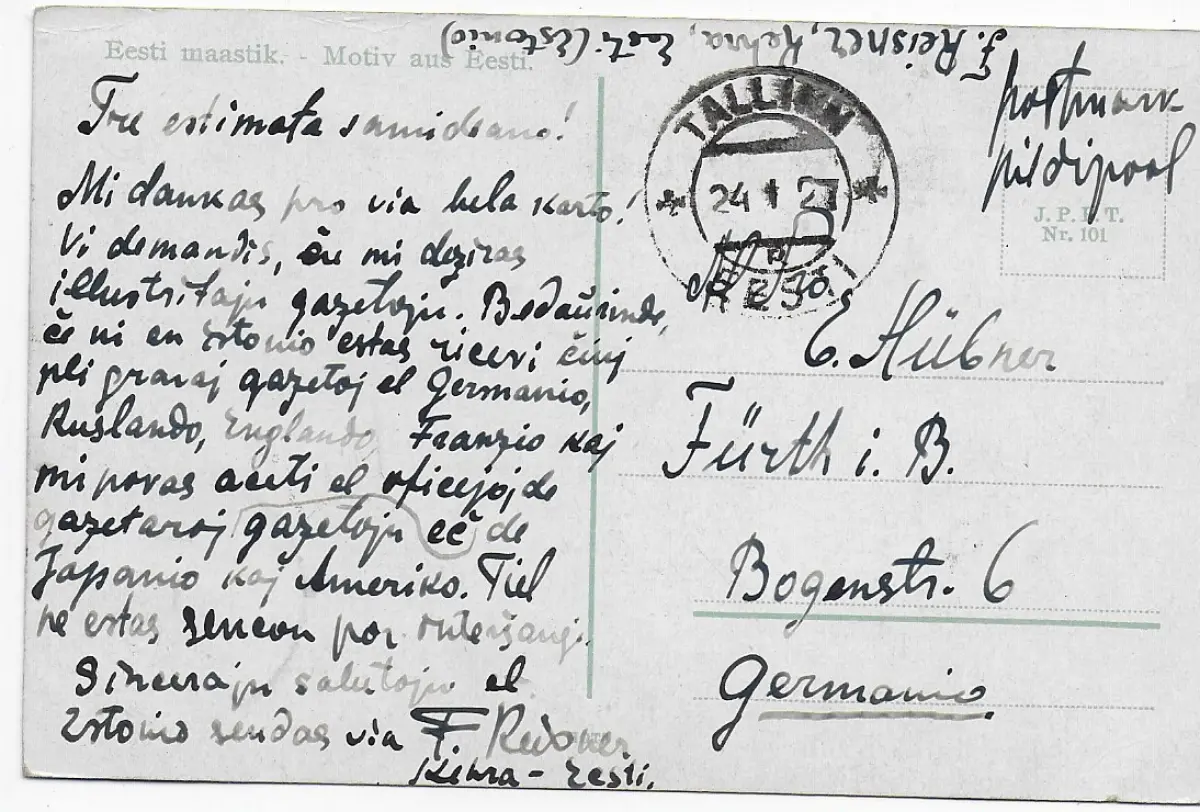 F. Reisner, Kehra, Eesti (Estonio)
Eesti maastik. - Motiv aus Eesti.
Tre estimata samideano!
Mi dankas pro via bela karto!
Vi demandis, ĉu mi deziras
illustritajn gazetojn. Bedaŭrinde,
ĉe ni en Estonio estas ricevi ĉiuj
pli gravaj gazetoj el Germanio,
Ruslando, Englando, Franzio kaj
mi povas aĉeti el oficejoj de
gazetaroj gazetojn eĉ de
Japanio kaj Ameriko. Tiel
ne estas sencon por interŝanĝi.
Sincerajn salutojn el
Estonio sendas via F.
Kehra - Eesti.
postmark
pildipool
TALLINN
24 1 27
EESTI
J. P. P. T.
Nr. 101
E. Hübner
Fürth i. B.
Bogenstr. 6
Germanio